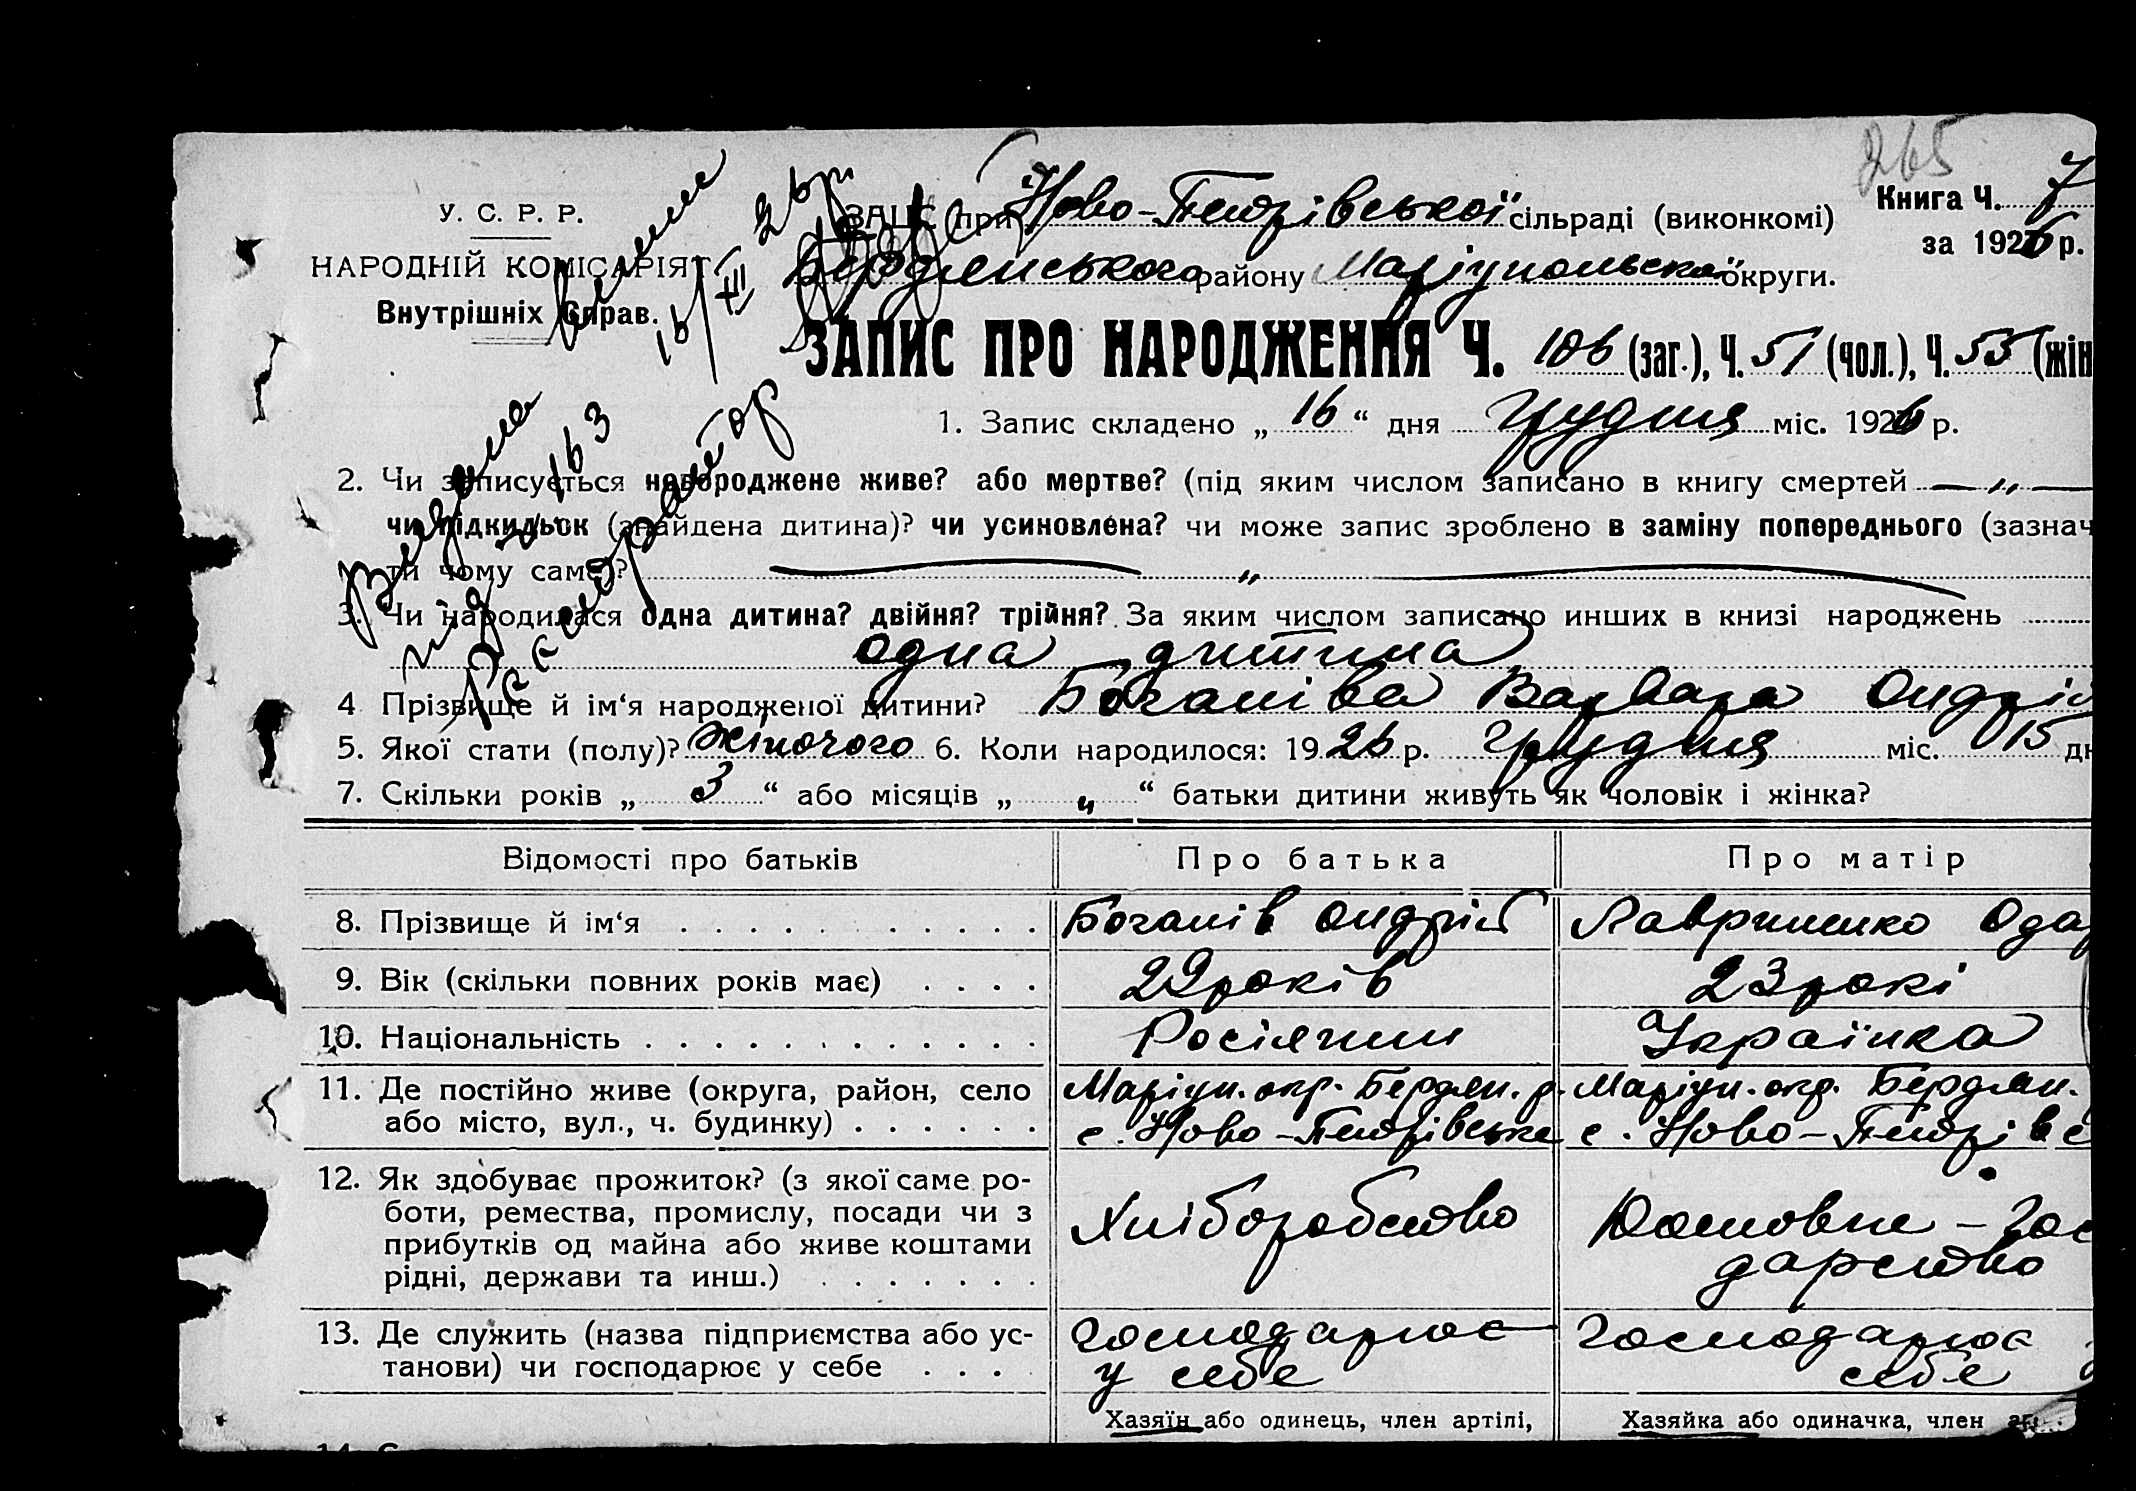 265
У. С. Р. Р.
НАРОДНІЙ КОМІСАРІЯТ
Внутрішніх Справ.
ЗАГС при Ново-Петрівської сільраді (виконкомі)
Книга Ч. 7
за 1926 р.
Бердянського району Маріупольської округи.
ЗАПИС ПРО НАРОДЖЕННЯ Ч. 106 (заг.), Ч. 51 (чол.), Ч. 55 (жін
16/XII 26 р.
Видана
під № 163
1. Запис складено „ 16 “ дня Грудня міс. 1926 р.
2. Чи записується новороджене живе? або мертве? (під яким числом записано в книгу смертей — „ —
чи підкидьок (знайдена дитина)? чи усиновлена? чи може запис зроблено в заміну попереднього (зазнач
ти чому саме)? — „ —
3. Чи народилася одна дитина? двійня? трійня? За яким числом записано инших в книзі народжень
одна дитина
4 Прізвище й ім‘я народженої дитини? Боганіва Варвара Ондрій
5. Якої стати (полу)? Жіночого 6. Коли народилося: 1926 р. Грудня міс. 15 дн
7. Скільки років „ 3 “ або місяців „ „ “ батьки дитини живуть як чоловік і жінка?
Відомості про батьків
Про батька
Про матір
8. Прізвище й ім‘я . . . . . . . . . . .
Боганів Ондрій
Лавриненко Ода
9. Вік (скільки повних років має) . . . .
22 років
23 рокі
10. Національність . . . . . . . . . . . .
Росіянин
Українка
11. Де постійно живе (округа, район, село
або місто, вул., ч. будинку) . . . . . .
Маріуп. окр. Бердян. р.
с. Ново-Петрівське
Маріуп. окр. Бердян.
с. Ново-Петрівс
12. Як здобуває прожиток? (з якої саме ро-
боти, ремества, промислу, посади чи з
прибутків од майна або живе коштами
рідні, держави та инш.) . . . . . . .
Хліборобство
Домовне - Гос
дарство
13. Де служить (назва підприємства або ус-
танови) чи господарює у себе . . .
Господарює
у себе
Господарює
себе
Хазяїн або одинець, член артілі,
Хазяйка або одиначка, член